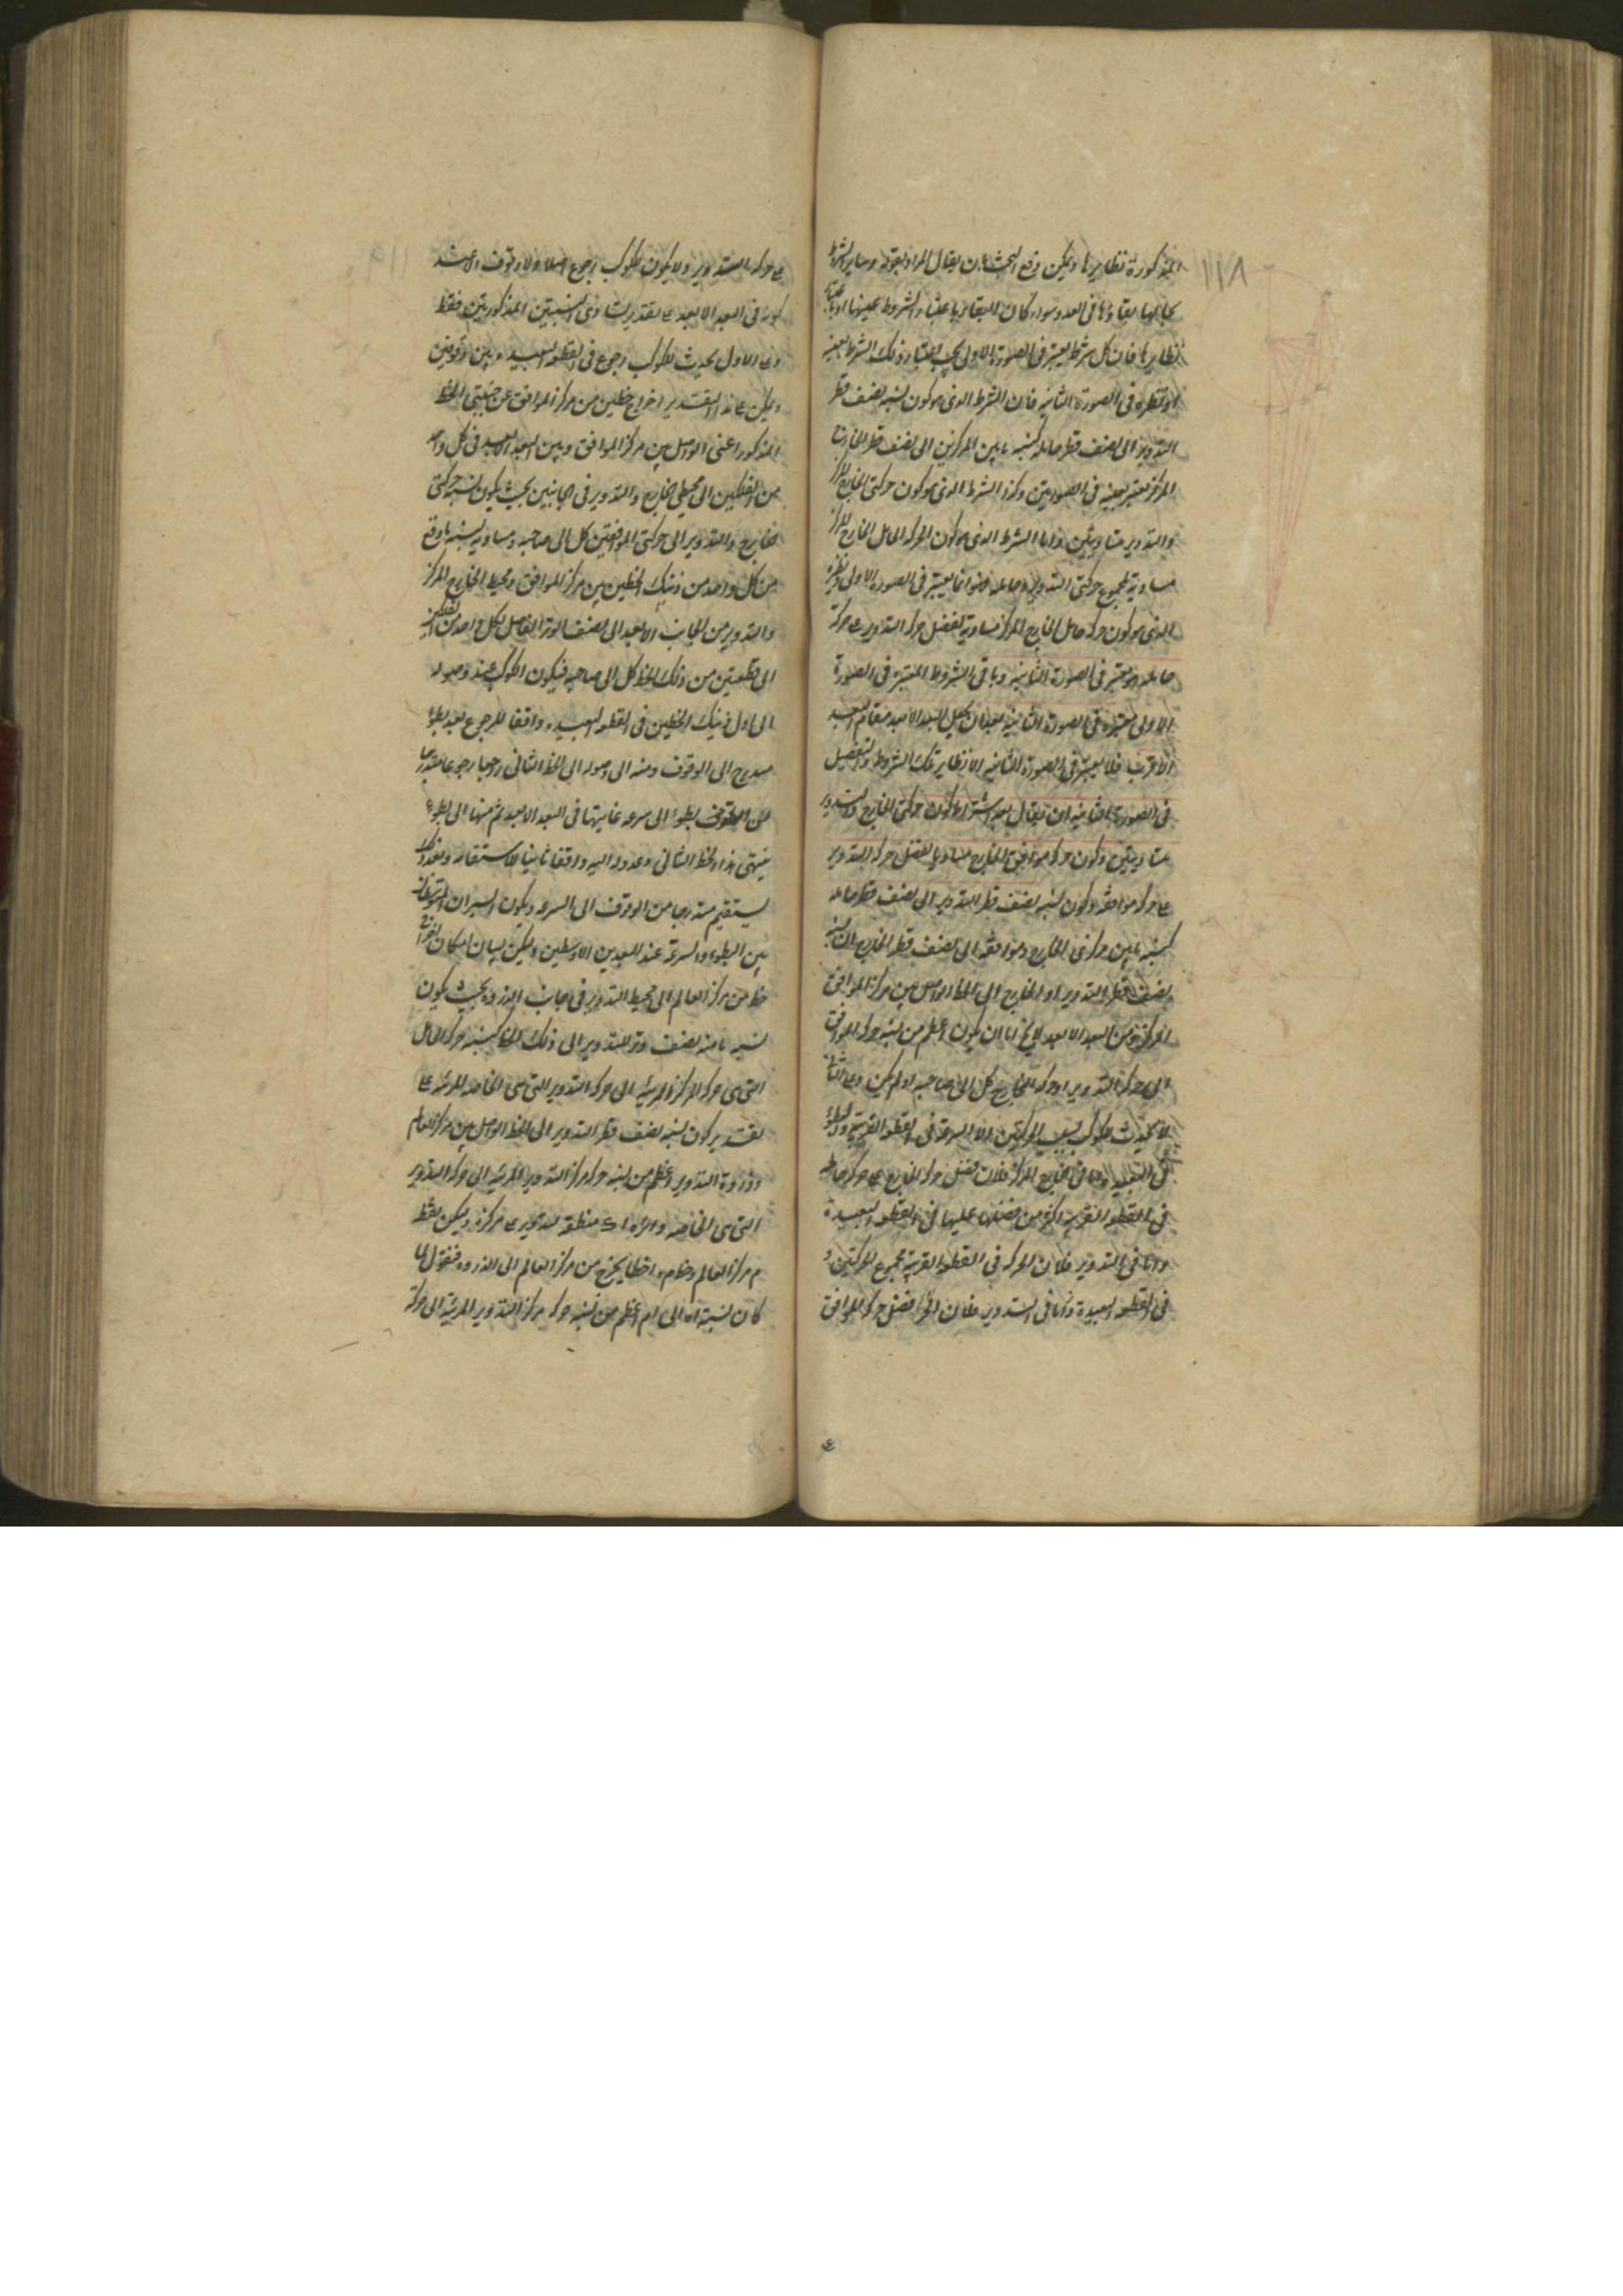 ١١٨
المذكورة نظايرها ويمكن دفع البحث بان يقال المراد بقوله وساير الشروط
بحالها بقاؤها في العدد سواء كان البقاء باعتبار الشروط عينها او باعتبار
نظايرها فان كل شرط يعتبر في الصورة الاولى يجب اعتبار ذلك الشرط بعينه
او نظيره في الصورة الثانيه فان الشرط الذى هو كون نسبة نصف قطر
التدوير الى نصف قطر حامله كنسبة ما بين المركزين الى نصف قطر الخارج
المركز معتبر بعينه في الصورتين وكذا الشرط الذى هو كون حركتى الخارج المركز
والتدوير متساويتين واما الشرط الذى هو كون الحركة الحامل الخارج المركز
مساوية لمجموع حركتى التدوير وحامله فهو انما يعتبر في الصورة الاولى ونظيره
الذى هو كون حركة حامل الخارج المركز مساوية لفضل حركة التدوير على حركة
حامله هو معتبر في الصورة الثانية وباقى الشروط المعتبرة في الصورة
الاولى معتبرة في الصورة الثانية بعد ان يجعل البعد الابعد مقام البعد
الاقرب فلا يعتبر في الصورة الثانيه الا نظاير تلك الشروط والتفصيل
في الصورة الثانيه ان يقال بعد اشتراط كون حركتى الخارج والتدوير
متساويتين وكون حركة موافق الخارج مساويا لفضل حركة التدوير
على حركة موافقه وكون نسبة نصف قطر التدوير الى نصف قطر حامله
كنسبة ما بين مركزى الخارج وموافقه الى نصف قطر الخارج ان نسبة
نصف قطر التدوير او الخارج الى الخط الواصل بين مركز الموافق
المركز ومن البعد الابعد لا يخ اما ان يكون اعظم من نسبة حركة الموافق
الى حركة التدوير او حركة الخارج كل الى صاحبه او لم يكن وعلى الثانى
لا يحدث للكوكب بسبب الحركتين الا السرعة في القطعة القريبة والبطؤ
في البعيدة اما في الخارج المركز فلان فضل حركة الخارج على حركة حامله
في القطعة القريبه اكثر من فضلها عليها في القطعة البعيدة
واما في التدوير فلان الحركة في القطعة القريبة مجموع الحركتين و
في القطعة البعيدة واما في التدوير فلان فضل حركة الموافق
ع
١١٩
على حركة التدوير ولا يكون للكوكب رجوع اصلا ولا وقوف
في البعد الابعد على تقدير تساوى النسبتين المذكورتين فقط
وعلى الاول يحدث للكوكب رجوع في القطعة البعيدة وبين وقوفين
ويمكن على هذا التقدير اخراج خطين من مركز الموافق عن جنبتى الخط
المذكور اعنى الواصل بين مركز الموافق وبين البعد الابعد في كل واحد
من الفلكين الى محيطى الخارج والتدوير في الجانبين بحيث يكون نسبة حركتى
الخارج والتدوير الى حركتى الموافقين كل الى صاحبه مساوية لنسبة ما وقع
من كل واحد من ذينك الخطين بين مركز الموافق ومحيط الخارج المركز
والتدوير من الجانب الابعد الى نصف الوتر الفاصل لكل واحد من الفلكين
الى قطعتين من ذلك الخط كل الى صاحبه فيكون الكوكب عند وصوله
الى اول ذينك الخطين في القطعة البعيدة واقفا للرجوع بعد بطؤ
متدرج الى الوقوف ومنه الى وصوله الى الخط الثانى راجعا رجوعا متدرجا
من الوقوف بطؤا الى سرعة غايتها في البعد الابعد ثم منها الى بطؤ
ينتهى بذا الخط الثانى وعند وصوله اليه واقفا ثانيا للاستقامة وبعد ذلك
يستقيم متدرجا من الوقوف الى السرعة ويكون السير ان المتوسطان
بين البطؤ والسرعة عند البعدين الاوسطين ويمكن بيان امكان اخراج
خط من مركز العالم الى محيط التدوير في جانب الذروة بحيث يكون
نسبة ما منه نصف وتر التدوير الى ذلك الخط كنسبة حركة الحامل
التى هى حركة المركز المرئية الى حركة التدوير التى هى الخاصة المرئية على
تقدير كون نسبة نصف قطر التدوير الى الخط الواصل بين مركز العالم
وذروة التدوير اعظم من نسبة حركة مركز التدوير المرئية الى حركة التدوير
التى هى الخاصه ودائرة اب منطقة التدوير على مركز ه وليكن نقطة
م مركز العالم وخط م ا خطا يخرج من مركز العالم الى الذروة فنقول لما
كان نسبة اه الى ام اعظم من نسبة حركة مركز التدوير المرئية الى حركة